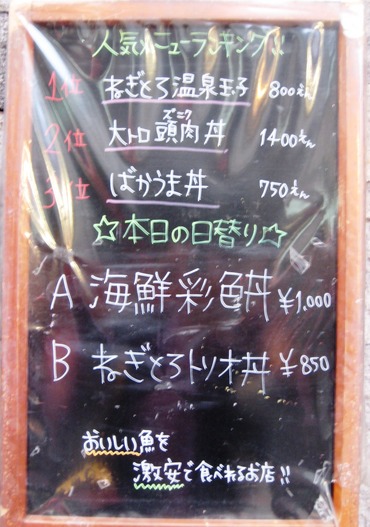 人気メニューランキング!!
1位 ねぎとろ温泉玉子 800えん
ズニク
2位 大トロ頭肉丼 1400えん
3位 ばかうま丼 750えん
☆本日の日替り☆
A 海鮮彩色丼 ¥1,000
B ねぎとろトリオ丼 ¥850
おいしい魚を
激安で食べれるお店!!